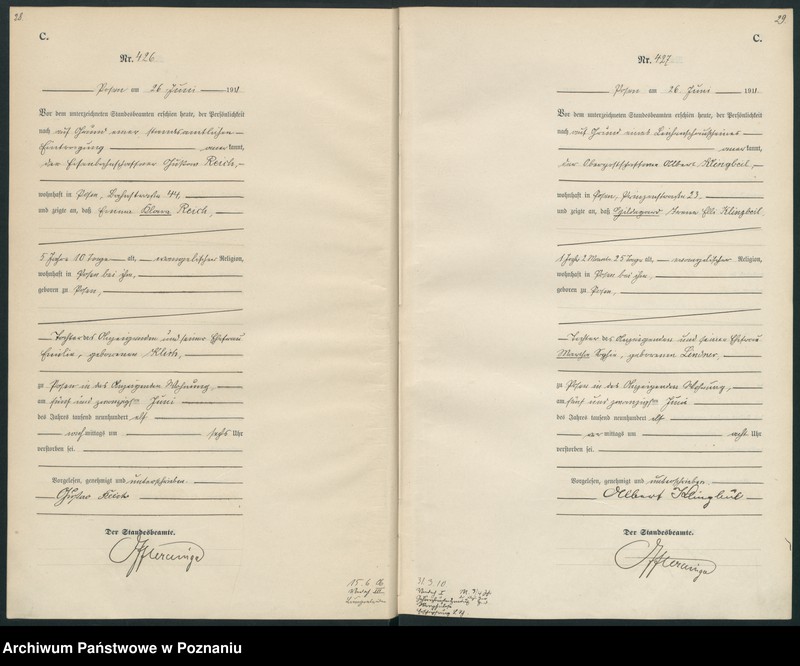 28.
C.
Nr. 426
Posen am 26 Juni 1911
Vor dem unterzeichneten Standesbeamten erschien heute, der Persönlichkeit
nach auf Grund einer standesamtlichen
Eintragung anerkannt,
der Eisenbahnschaffner Gustav Reich,
wohnhaft in Posen, Bahnstraße 44,
und zeigte an, daß Emma Klara Reich,
5 Jahre 10 Tage alt, evangelischer Religion,
wohnhaft in Posen bei ihm,
geboren zu Posen,
Tochter des Anzeigenden und seiner Ehefrau
Emilie, geborenen
zu Posen in des Anzeigenden Wohnung,
am fünf und zwanzigsten Juni
des Jahres tausend neunhundert elf
nachmittags um sechs Uhr
verstorben sei.
Vorgelesen, genehmigt und unterschrieben
Gustav Reich
Der Standesbeamte.
15.6.06
29.
C.
Nr. 427
Posen am 26 Juni 1911
Vor dem unterzeichneten Standesbeamten erschien heute, der Persönlichkeit
nach auf Grund eines Leichenschauscheines
anerkannt,
der Oberpostschaffner Albert Klingbeil,
wohnhaft in Posen, Prinzenstraße 23,
und zeigte an, daß Hildegard Irene Elli Klingbeil
1 Jahr 2 Monate 25 Tage alt, evangelischer Religion,
wohnhaft in Posen bei ihm,
geboren zu Posen,
Tochter des Anzeigenden und seiner Ehefrau
Martha Sophie, geborenen Lindner,
zu Posen in des Anzeigenden Wohnung,
am fünf und zwanzigsten Juni
des Jahres tausend neunhundert elf
vormittags um acht Uhr
verstorben sei.
Vorgelesen, genehmigt und unterschrieben
Albert Klingbeil
Der Standesbeamte.
31.3.10.
Archiwum Państwowe w Poznaniu